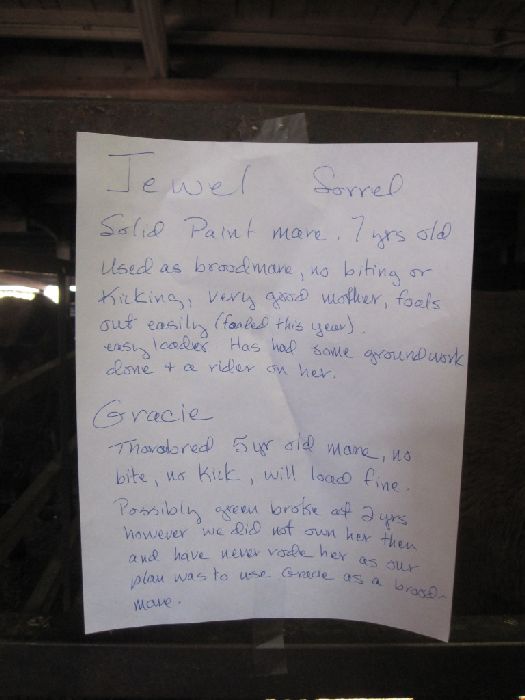 Jewel Sorrel
Solid Paint mare. 7 yrs old
Used as broodmare, no biting or
Kicking, very good mother, foals
out easily (foaled this year).
easy loader Has had some groundwork
done + a rider on her.
Gracie
Thorobred 5 yr old mare, no
bite, no kick, will load fine.
Possibly green broke at 2 yrs
however we did not own her then
and have never rode her as our
plan was to use Gracie as a brood-
mare.